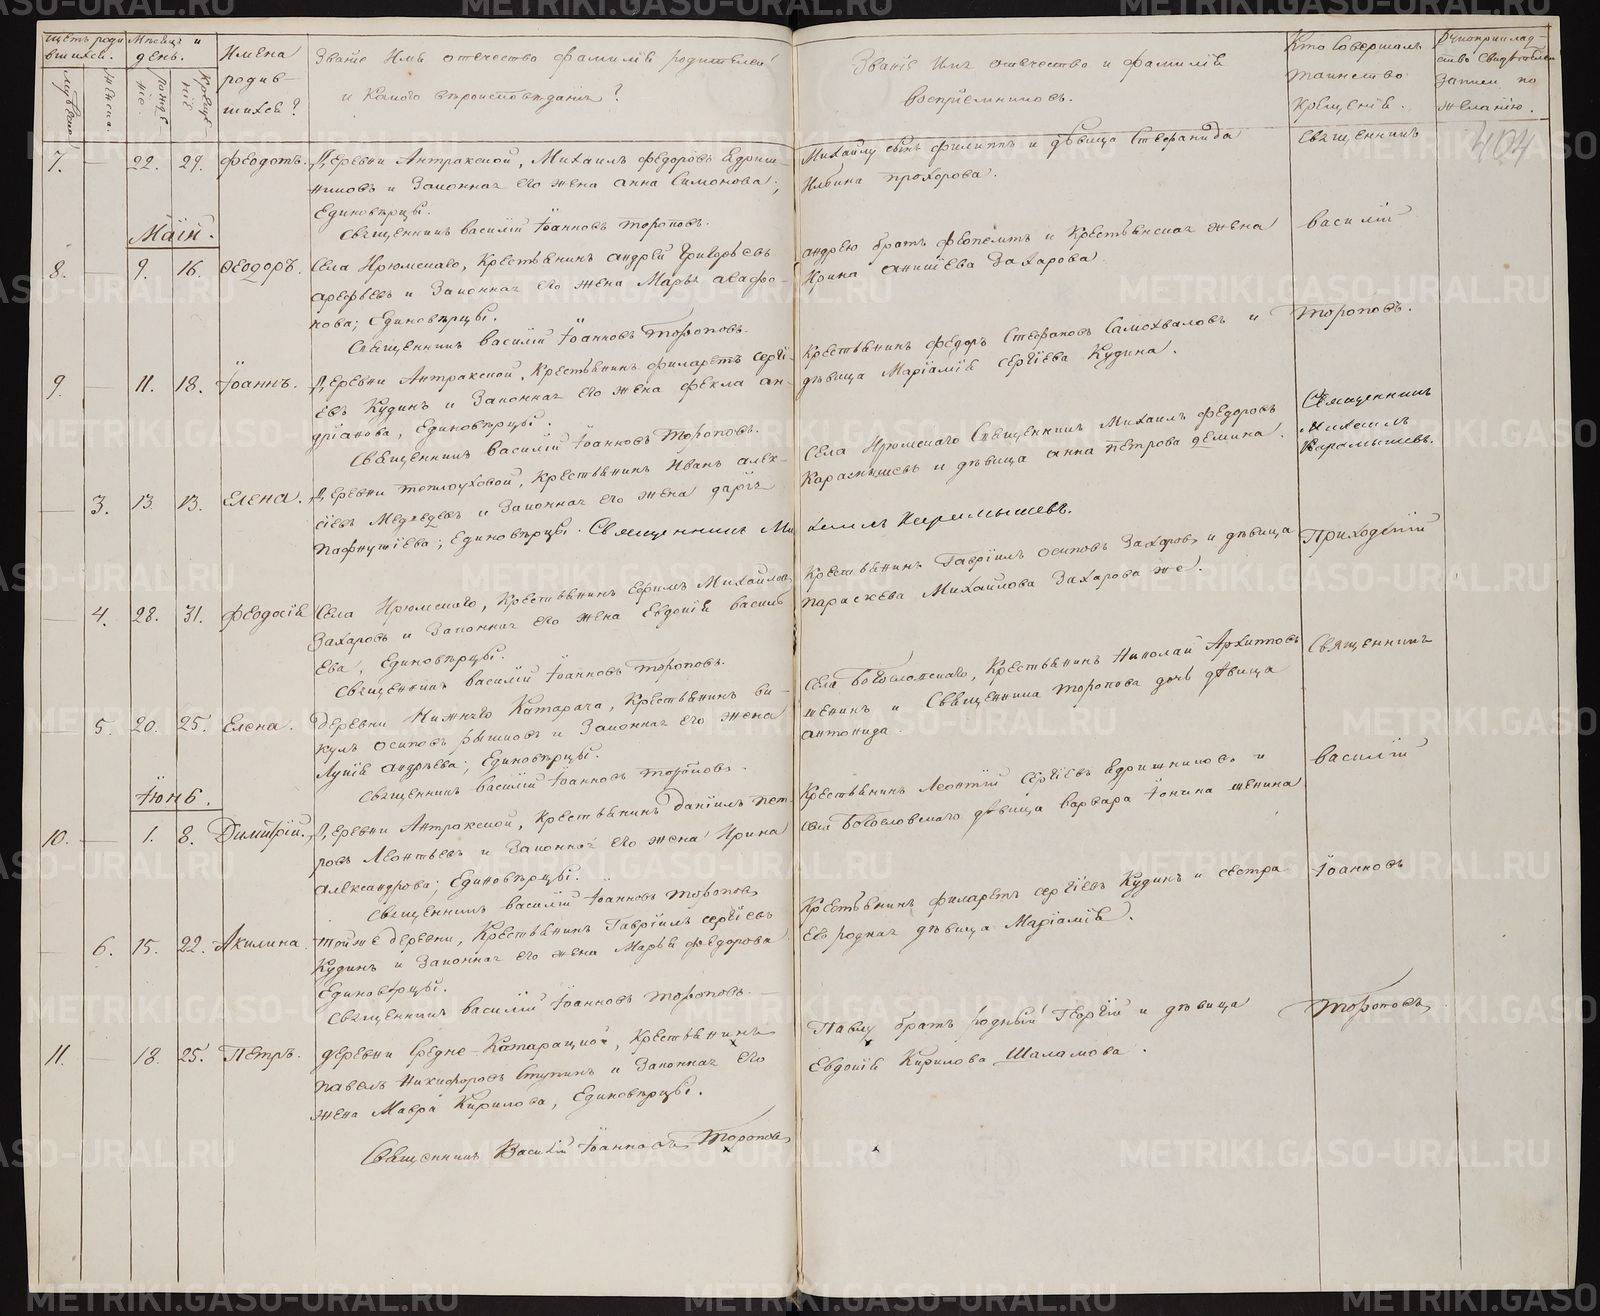 Щетъ роди
вшихся.
Мѣсяцъ и
день.
Имена
родив-
шихся?
Званіе Имя отечество фамилія родителей
и какого вѣроисповѣданія?
Званіе Имя отечество и фамилія
воспріемниковъ.
Кто совершалъ
таинство
крещенія.
записи по
желанію.
404
7. — 22. 29. Феодотъ. Деревни Антраксной, Михаилъ Федоровъ Едриш-
никовъ и Законная его жена Анна Симонова;
Единовѣрцы.
Священникъ Василій Іоанновъ Тороповъ.
Михайлу сынъ Филиппъ и дѣвица Стефанида
Ильина Прохорова.
Священникъ
Маій.
8. — 9. 16. Феодоръ. Села Ирюмскаго, Крестьянинъ Андрей Григорьевъ
Арефьевъ и Законная его жена Марья Агафо-
нова; Единовѣрцы.
Священникъ Василій Іоанновъ Тороповъ.
Андрею братъ Феопемтъ и Крестьянская жена
Ирина Аникіева Захарова
Василій
9. — 11. 18. Іоаннъ. Деревни Антраксной, Крестьянинъ Филаретъ Сергі-
евъ Кудинъ и Законная его жена Фекла Ан-
дріанова, Единовѣрцы.
Священникъ Василій Іоанновъ Тороповъ.
Крестьянинъ Федоръ Стефановъ Самохваловъ и
дѣвица Маріамія Сергіева Кудина.
Тороповъ.
— 3. 13. 13. Елена. Деревни Теплоуховой, Крестьянинъ Иванъ Алек-
сіевъ Медведевъ и Законная его жена Дарія
Пафнутіева; Единовѣрцы. Священникъ Ми
хаилъ Карамышевъ.
Села Ирюмскаго Священникъ Михаилъ Федоровъ
Карамышевъ и дѣвица Анна Петрова Демина.
Священникъ
Михаилъ
Карамышевъ.
— 4. 28. 31. Феодосія Села Ирюмскаго, Крестьянинъ Ефимъ Михайловъ
Захаровъ и Законная его жена Евдокія Василь
ева, Единовѣрцы.
Священникъ Василій Іоанновъ Тороповъ.
Крестьянинъ Гавріилъ Осиповъ Захаровъ и дѣвица
Параскева Михайлова Захарова же.
Приходскій
— 5. 20. 25. Елена. Деревни Нижняго Катарача, Крестьянинъ Ви-
кулъ Осиповъ Рышковъ и Законная его жена
Лукія Андреева; Единовѣрцы.
Священникъ Василій Іоанновъ Тороповъ.
Села Богословскаго, Крестьянинъ Николай Архиповъ
и Священника Торопова дочь дѣвица
Антонида.
Священникъ
Іюнь.
10. — 1. 8. Димитрій. Деревни Антраксной, Крестьянинъ Даніилъ Пет-
ровъ Леонтьевъ и Законная его жена Ирина
Александрова; Единовѣрцы.
Священникъ Василій Іоанновъ Тороповъ
Крестьянинъ Леонтій Сергіевъ Едришниковъ и
села Богословскаго дѣвица Варвара Іонина
Василій
— 6. 15. 22. Акилина. Тойже деревни, Крестьянинъ Гавріилъ Сергіевъ
Кудинъ и Законная его жена Марья Федорова
Единовѣрцы.
Священникъ Василій Іоанновъ Тороповъ.
Крестьянинъ Филаретъ Сергіевъ Кудинъ и сестра
его родная дѣвица Маріамія.
Іоанновъ
11. — 18. 25. Петръ. Деревни Средне-Катарацкой, Крестьянинъ
Павелъ Никифоровъ Ступинъ и Законная его
жена Мавра Кирилова, Единовѣрцы.
Священникъ Василій Іоанновъ Тороповъ
Павлу братъ родный Георгій и дѣвица
Евдокія Кирилова Шаламова.
Тороповъ
METRIKI.GASO-URAL.RU